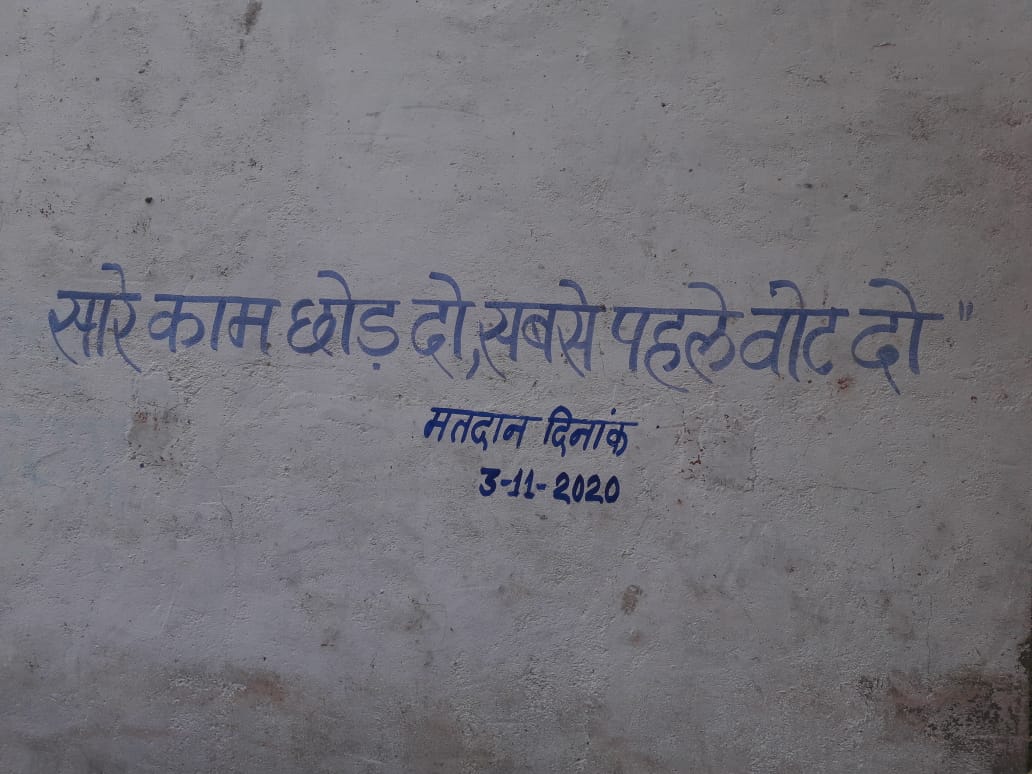 सारे काम छोड़ दो, सबसे पहले वोट दो"
मतदान दिनांक
3-11-2020